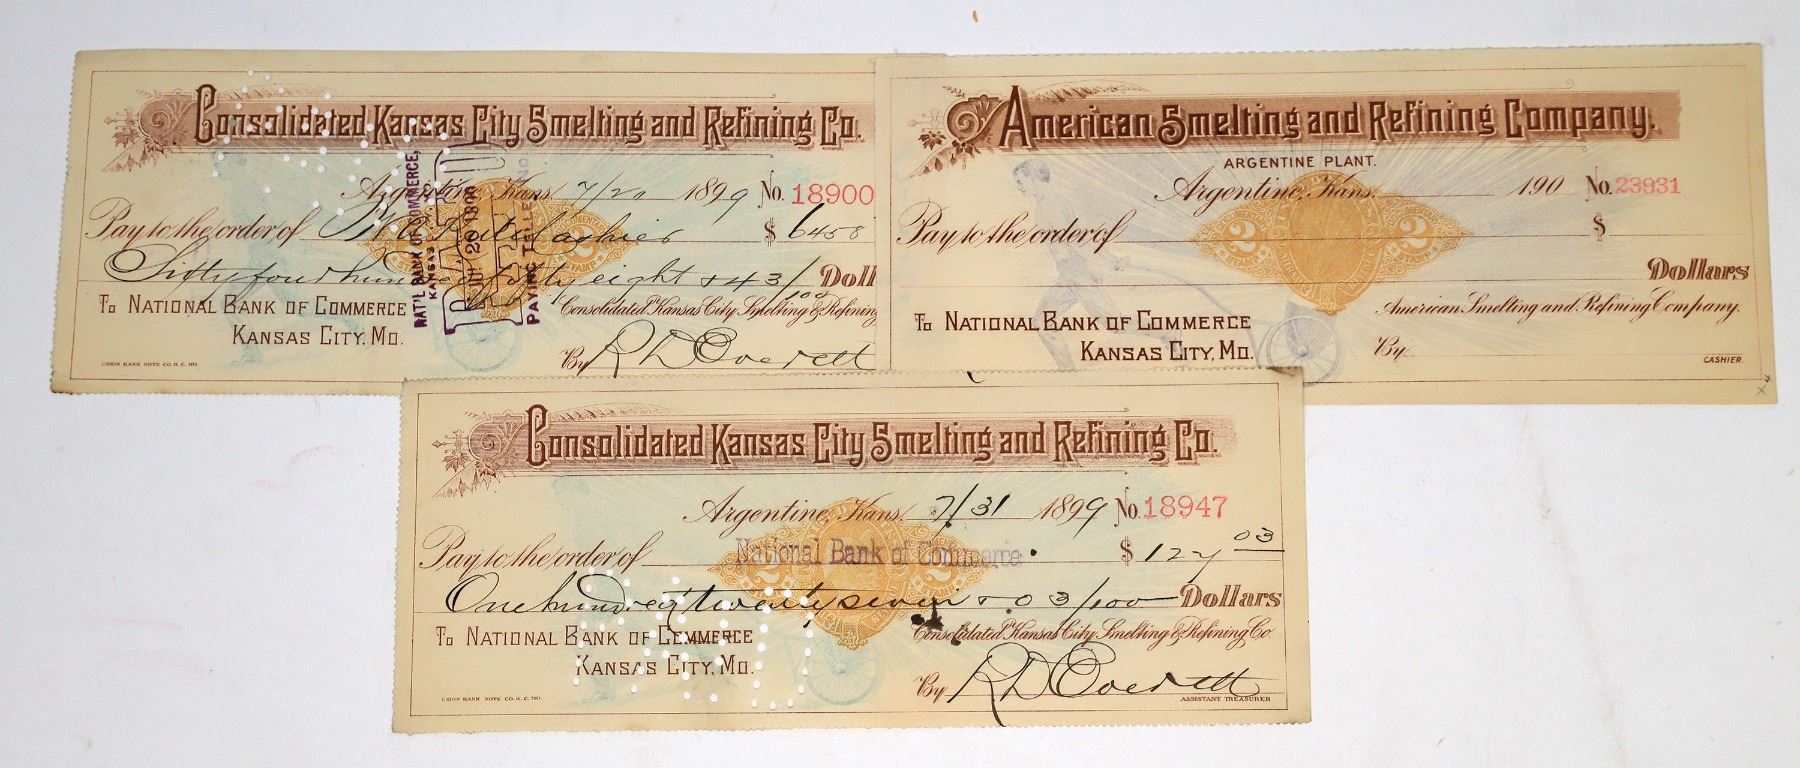 Consolidated Kansas City Smelting and Refining Co.
Argentine, Kans. 7/20 1899 No. 18900
Pay to the order of Cashier $ 6458
Sixty four hundred fifty eight & 43/100 Doll
To National Bank of Commerce
Kansas City, Mo.
Consolidated Kansas City Smelting & Refining
By R D Everett
UNION BANK NOTE CO. K. C. MO.
NAT'L BANK OF COMMERCE,
KANSAS CITY, MO.
PAID
JUL 20 1899
PAYING TELLER NO
American Smelting and Refining Company.
ARGENTINE PLANT.
Argentine, Kans. 190 No. 23931
Pay to the order of $
2 2
Dollars
To National Bank of Commerce
Kansas City, Mo.
American Smelting and Refining Company.
By
CASHIER.
x4
Consolidated Kansas City Smelting and Refining Co.
Argentine, Kans. 7/31 1899 No. 18947
Pay to the order of National Bank of Commerce $ 127 03
One hundred twenty seven & 03/100 Dollars
To National Bank of Commerce
Kansas City, Mo.
Consolidated Kansas City Smelting & Refining Co.
By R D Everett
UNION BANK NOTE CO. K. C. MO.
ASSISTANT TREASURER